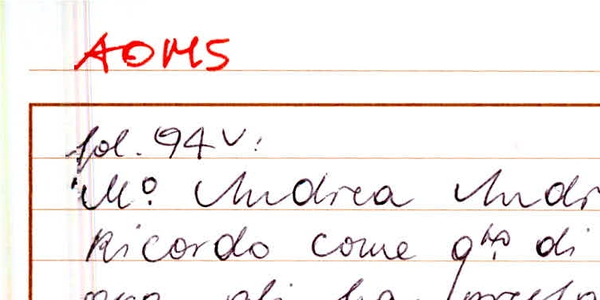 AOMS
fol. 94v:
"Mo. Andrea Andr
Ricordo come q.to di